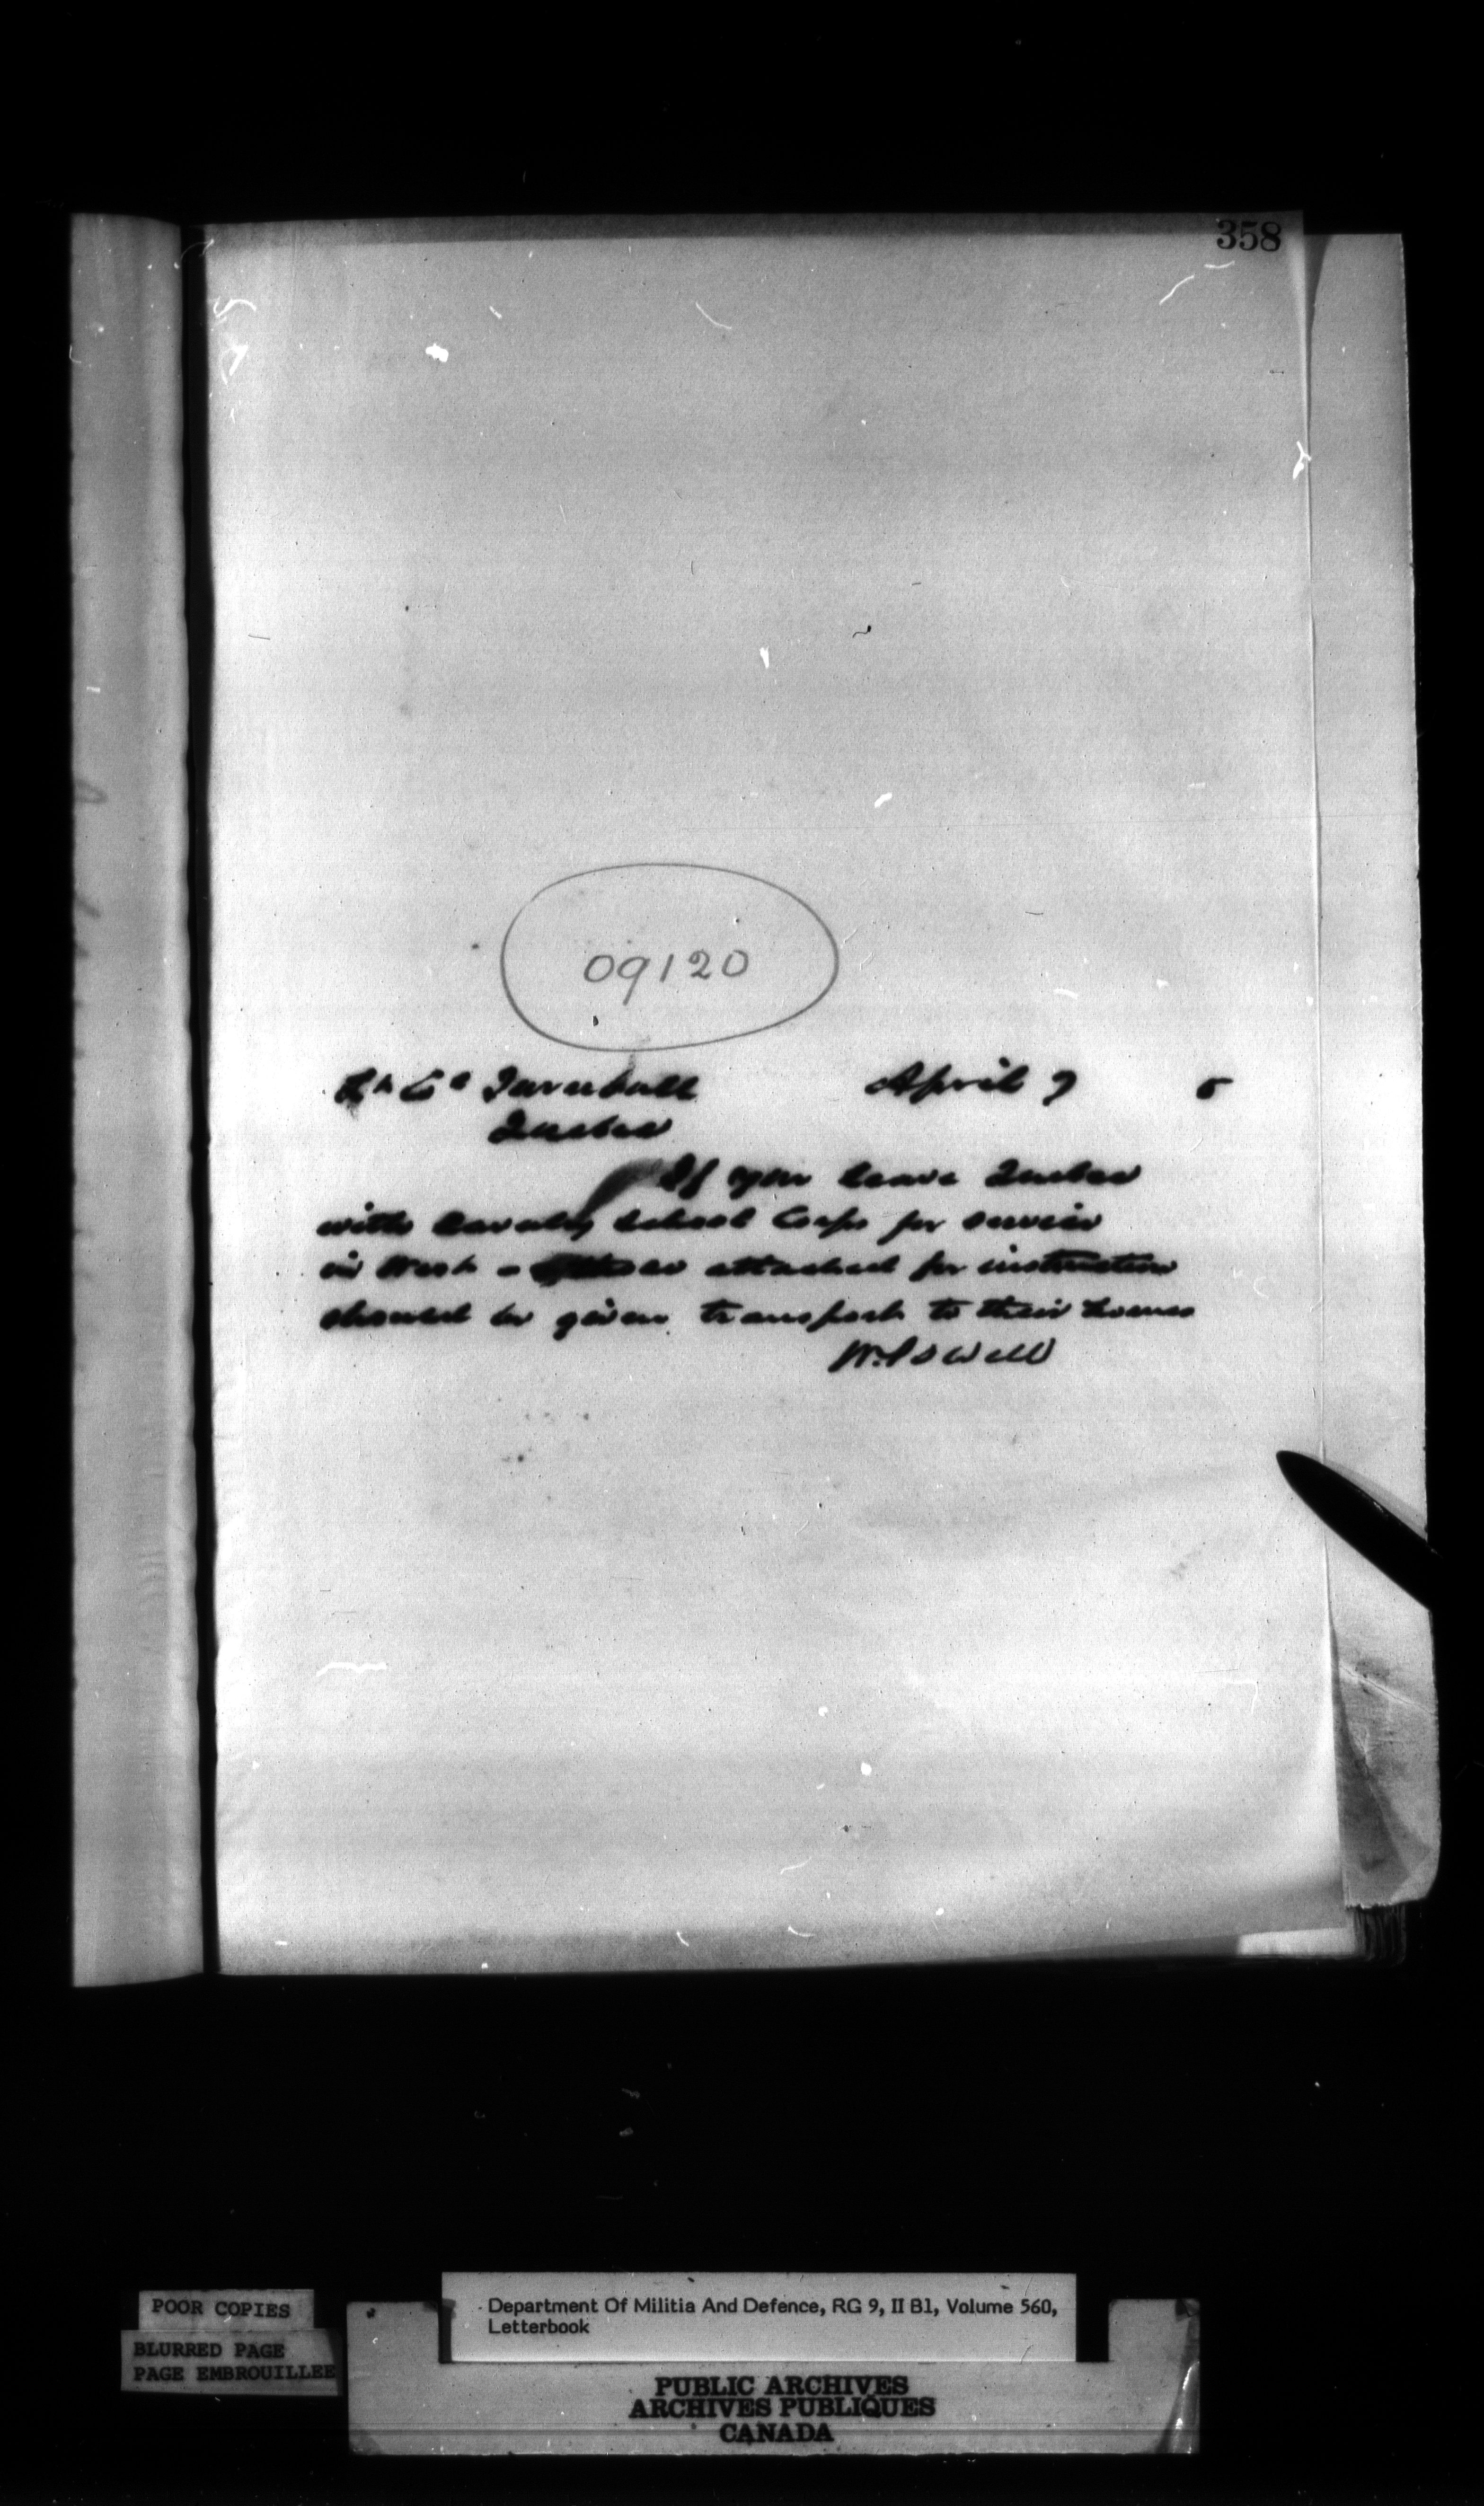 358
09120
Lt Cl Turnbull April 9 5
Quebec
If you leave Quebec
with Cavalry School Corps for service
in West - those attached for instruction
should be given transport to their homes
W. Powell
POOR COPIES
BLURRED PAGE
PAGE EMBROUILLEE
Department Of Militia And Defence, RG 9, II B1, Volume 560,
Letterbook
PUBLIC ARCHIVES
ARCHIVES PUBLIQUES
CANADA